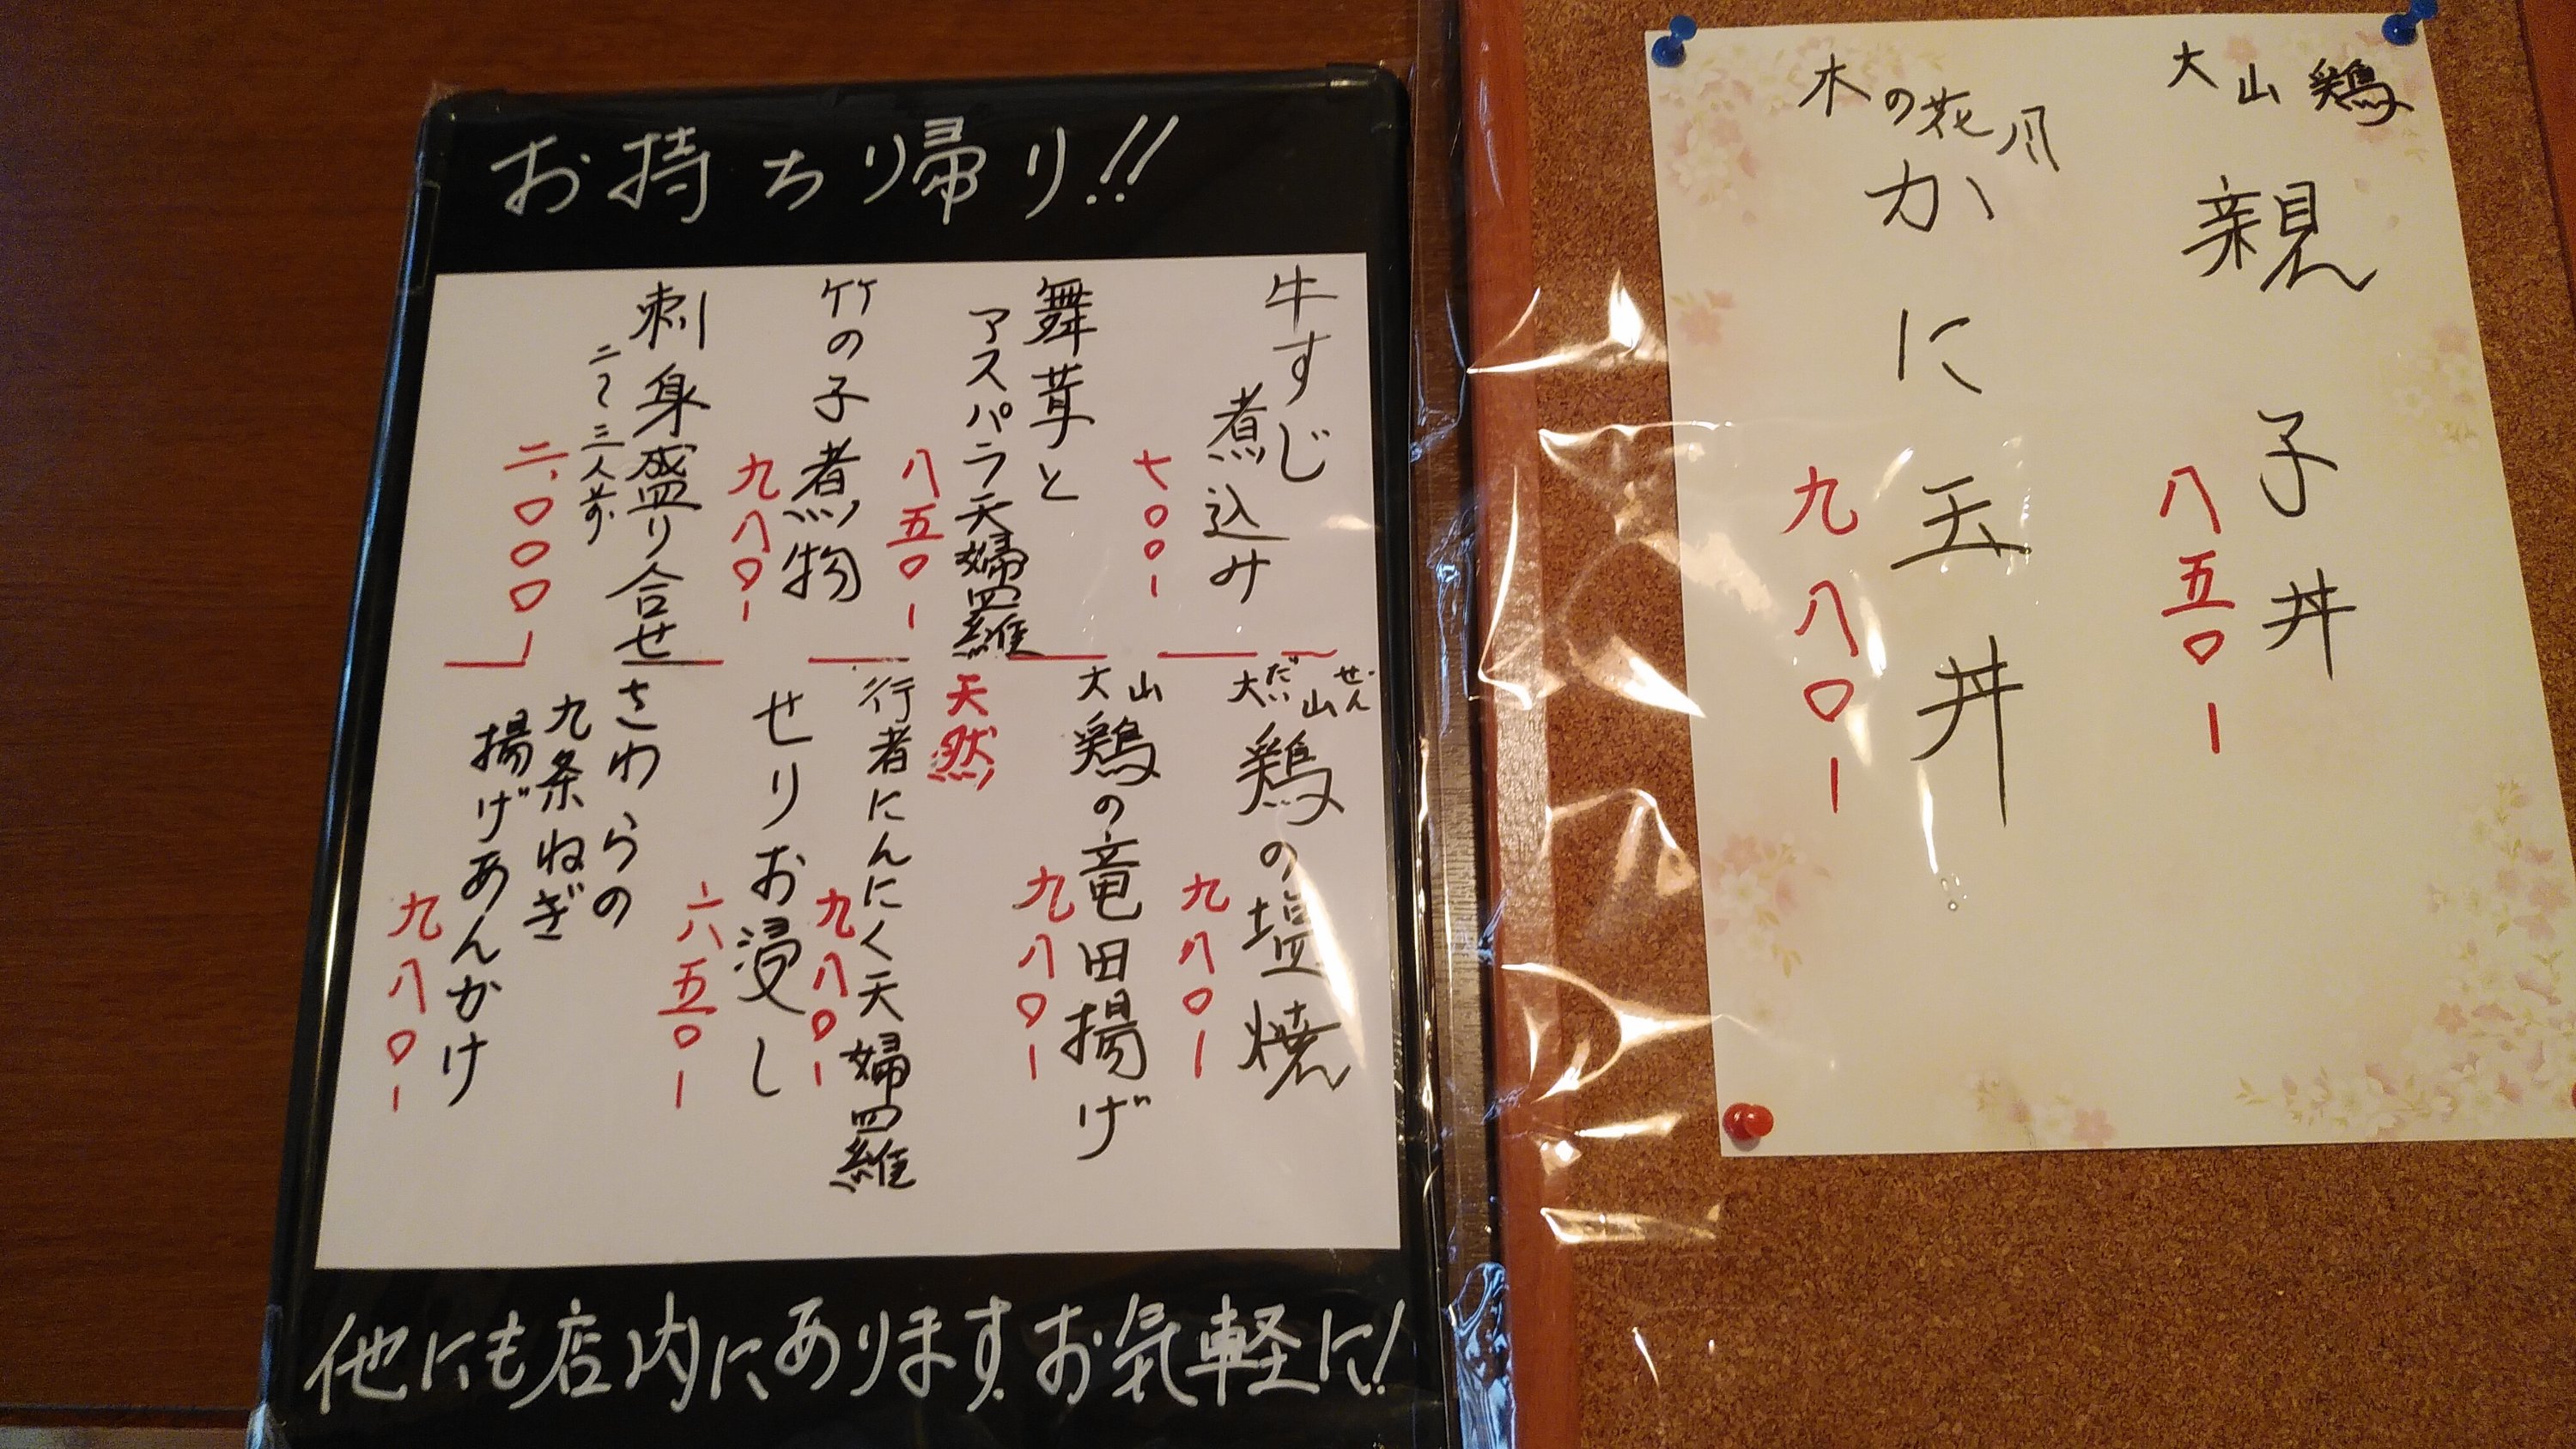 お持ち帰り!!
牛すじ
煮込み
七〇〇-
舞茸と
アスパラ天婦羅
八五〇-
竹の子煮物
九八〇-
刺身盛り合せ
二〜三人前
二、〇〇〇-
大山鶏の塩焼
だいせん
九八〇-
大山鶏の竜田揚げ
九八〇-
天然
行者にんにく天婦羅
九八〇-
せりお浸し
六五〇-
さわらの
九条ねぎ
揚げあんかけ
九八〇-
他にも店内にあります。お気軽に!
大山鶏
親子丼
八五〇-
木の花
かに玉丼
九八〇-